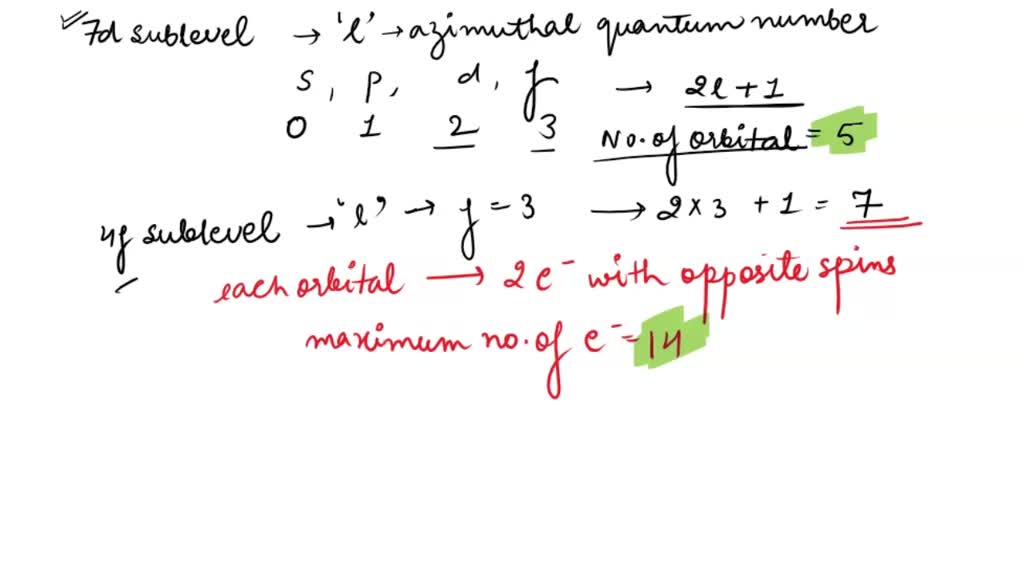 7d sublevel → 'l' → azimuthal quantum number
s, p, d, f → 2l + 1
0 1 2 3 No. of orbital = 5
4f sublevel → 'l' → f = 3 → 2 × 3 + 1 = 7
each orbital → 2e⁻ with opposite spins
maximum no. of e⁻ = 14